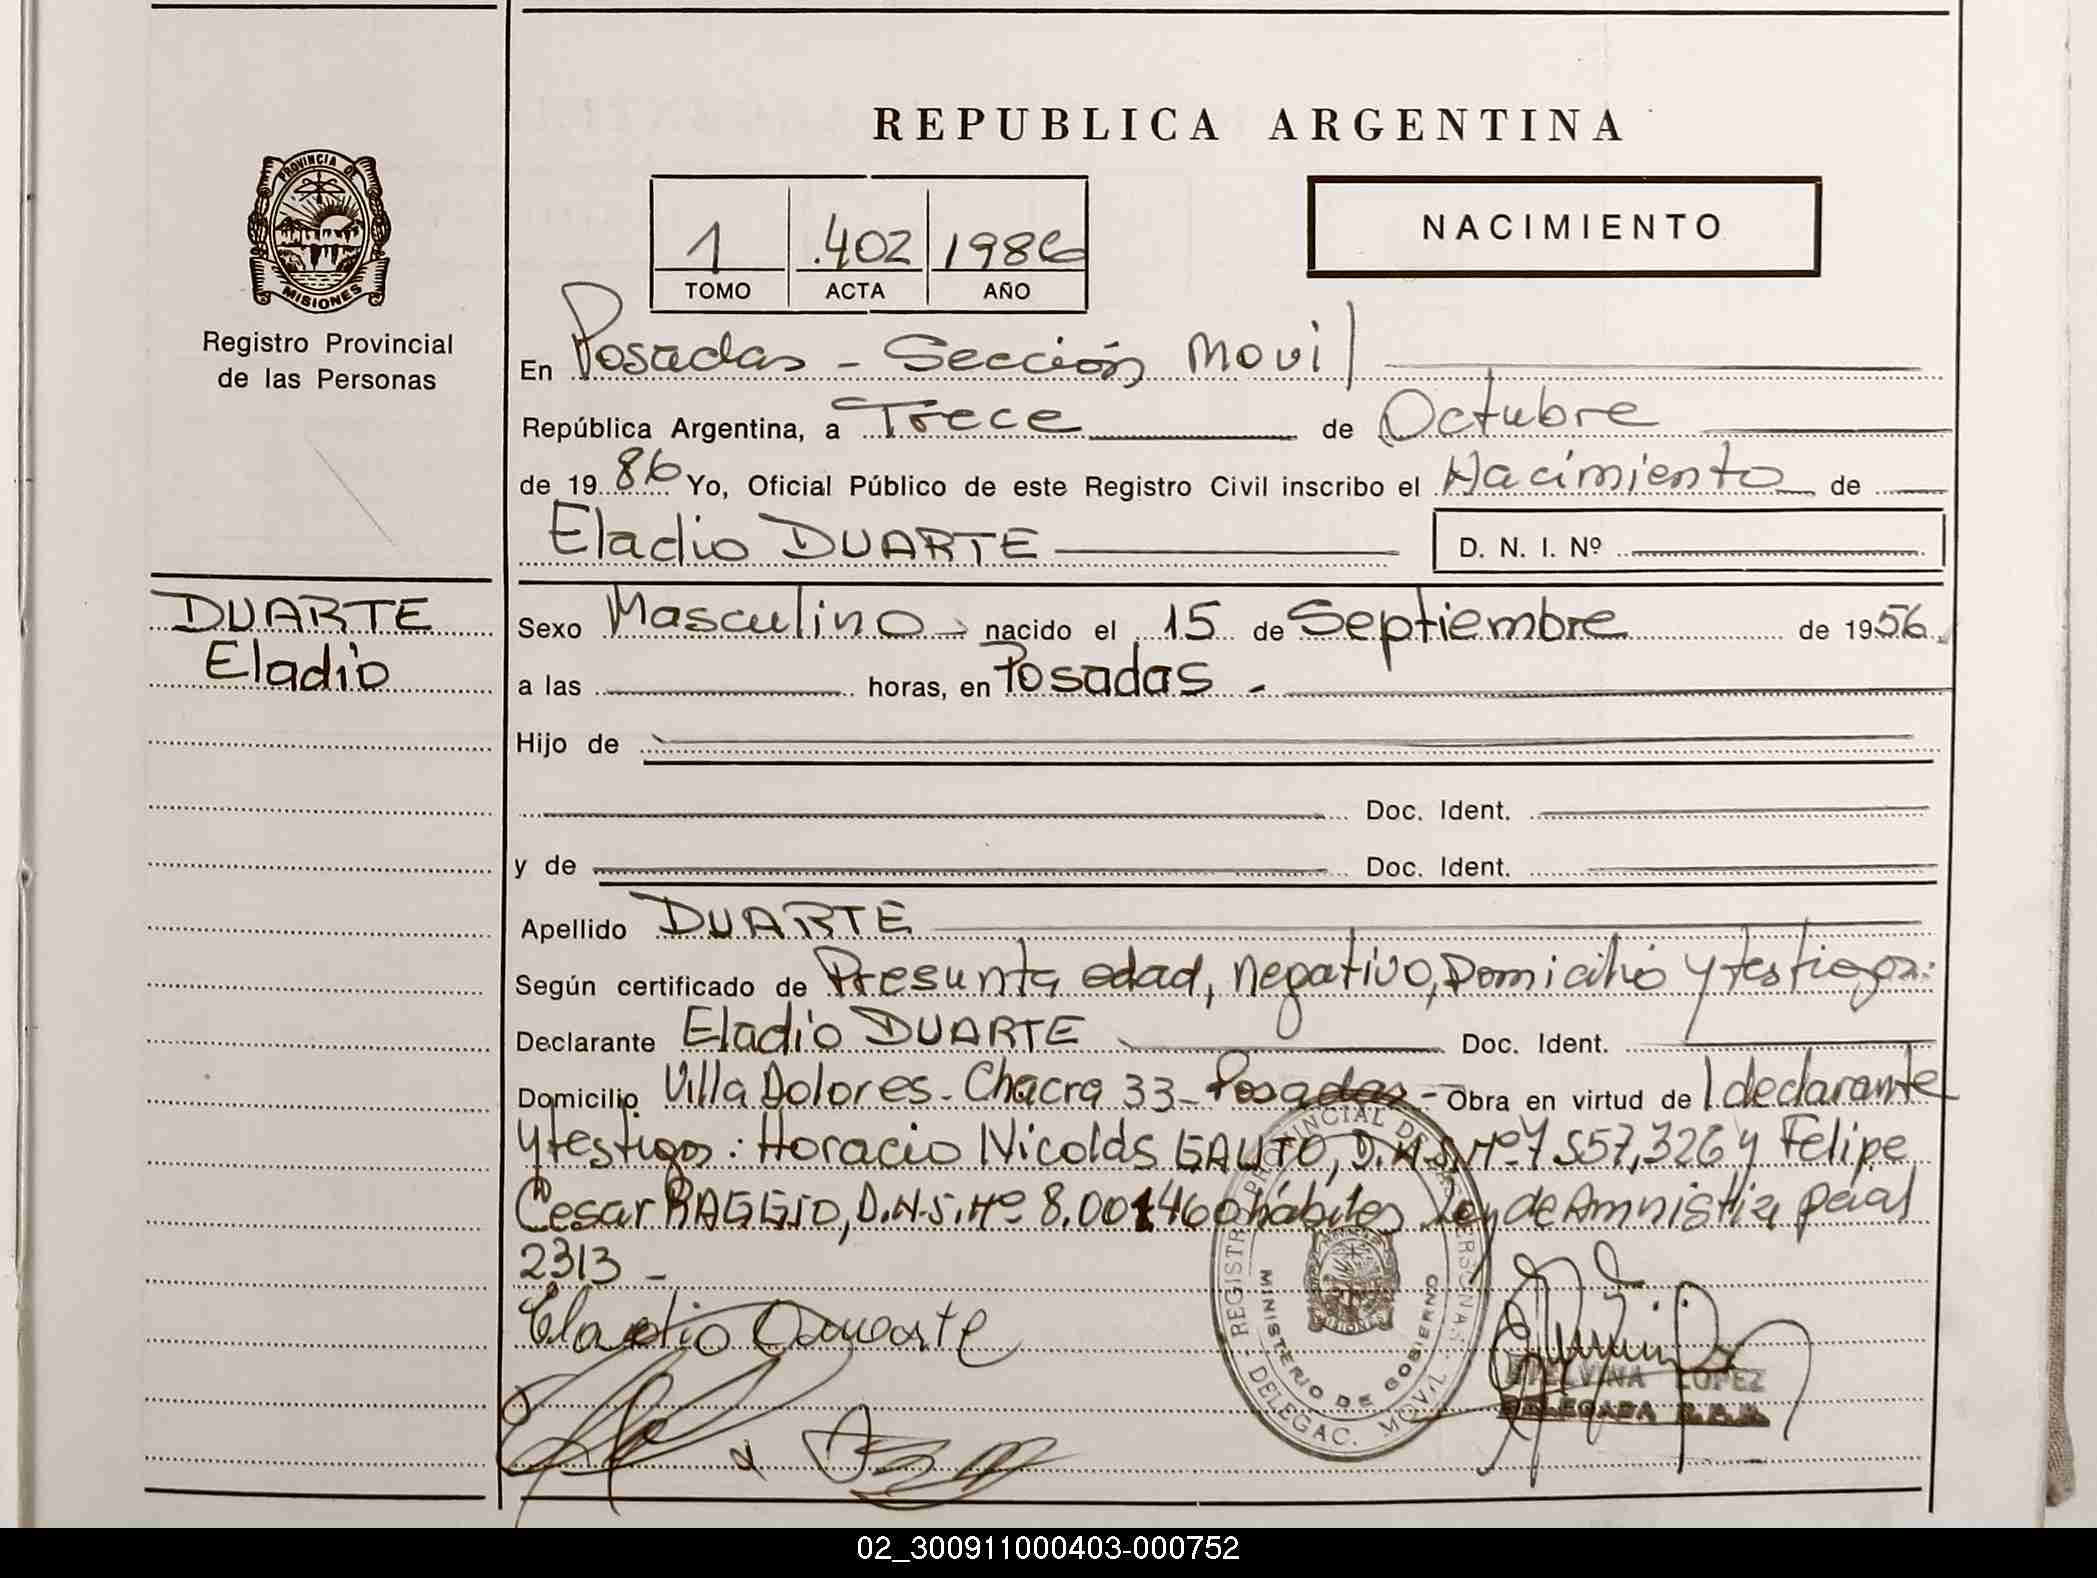 REPUBLICA ARGENTINA
PROVINCIA DE
MISIONES
Registro Provincial
de las Personas
1 .402 1986
TOMO ACTA AÑO
NACIMIENTO
En Posadas - Sección Movil
República Argentina, a Trece de Octubre
de 1986 Yo, Oficial Público de este Registro Civil inscribo el Nacimiento de
Eladio DUARTE D. N. I. Nº
DUARTE
Eladio
Sexo Masculino - nacido el 15 de Septiembre de 1956
a las horas, en Posadas -
Hijo de
Doc. Ident.
y de Doc. Ident.
Apellido DUARTE
Según certificado de Presunta edad, negativo, Domicilio y testigos:
Declarante Eladio DUARTE Doc. Ident.
Domicilio Villa Dolores - Chacra 33 - Posadas - Obra en virtud de l declarante
y testigos: Horacio Nicolás GAUTO, D.N.I. Nº 7557,326 y Felipe
Cesar RAGGIO, D.N.I. Nº 8.001460 hábiles Ley de Amnistia pcial
2313 -
Eladio Duuarte
REGISTRO PROVINCIAL DE LAS PERSONAS
MINISTERIO DE GOBIERNO
DELEGAC. MOVIL
ETELVINA LOPEZ
DELEGADA
02_300911000403-000752